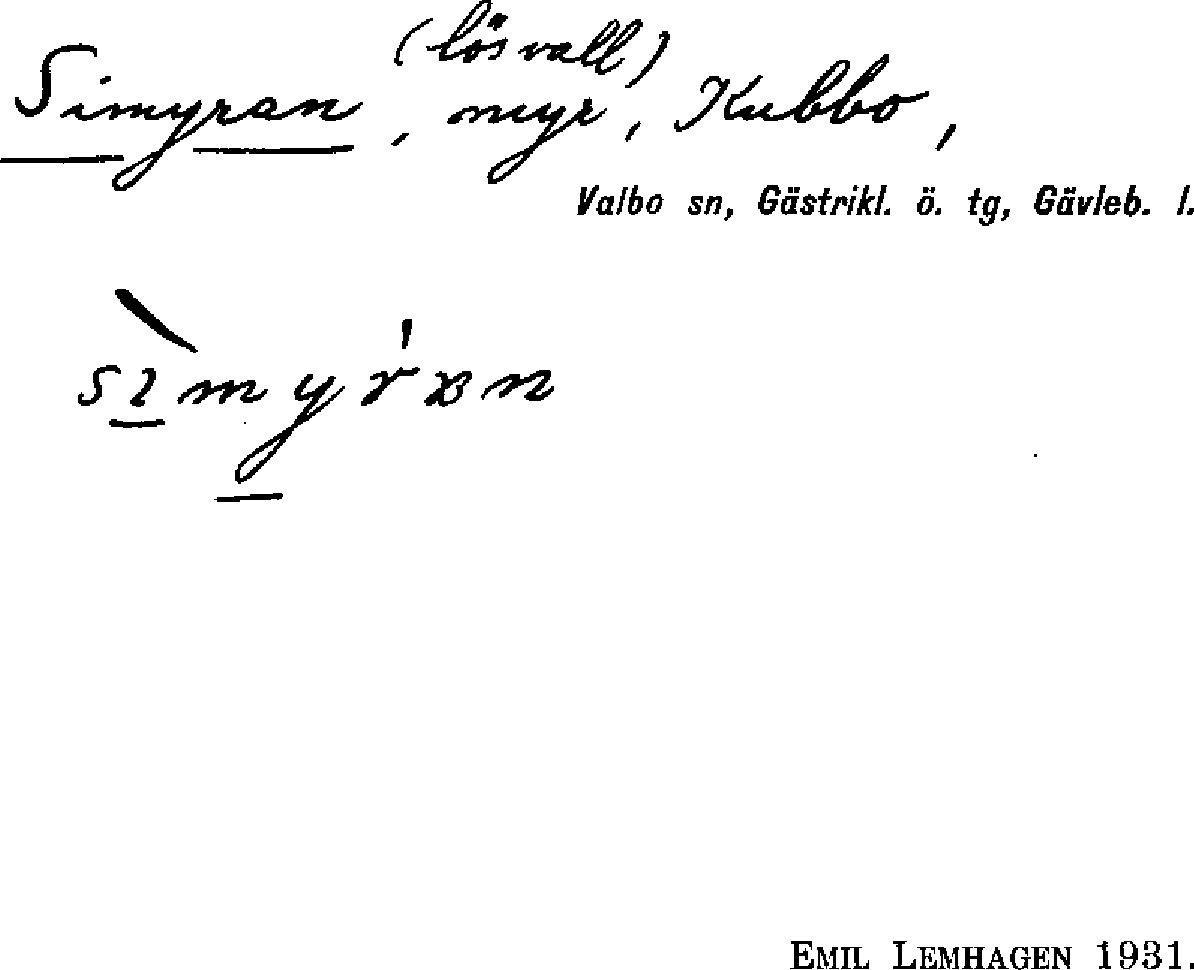 (lösvall)
Simyran, myr, Kubbo,
Valbo sn, Gästrikl. ö. tg, Gävleb. l.
sımyran
EMIL LEMHAGEN 1931.